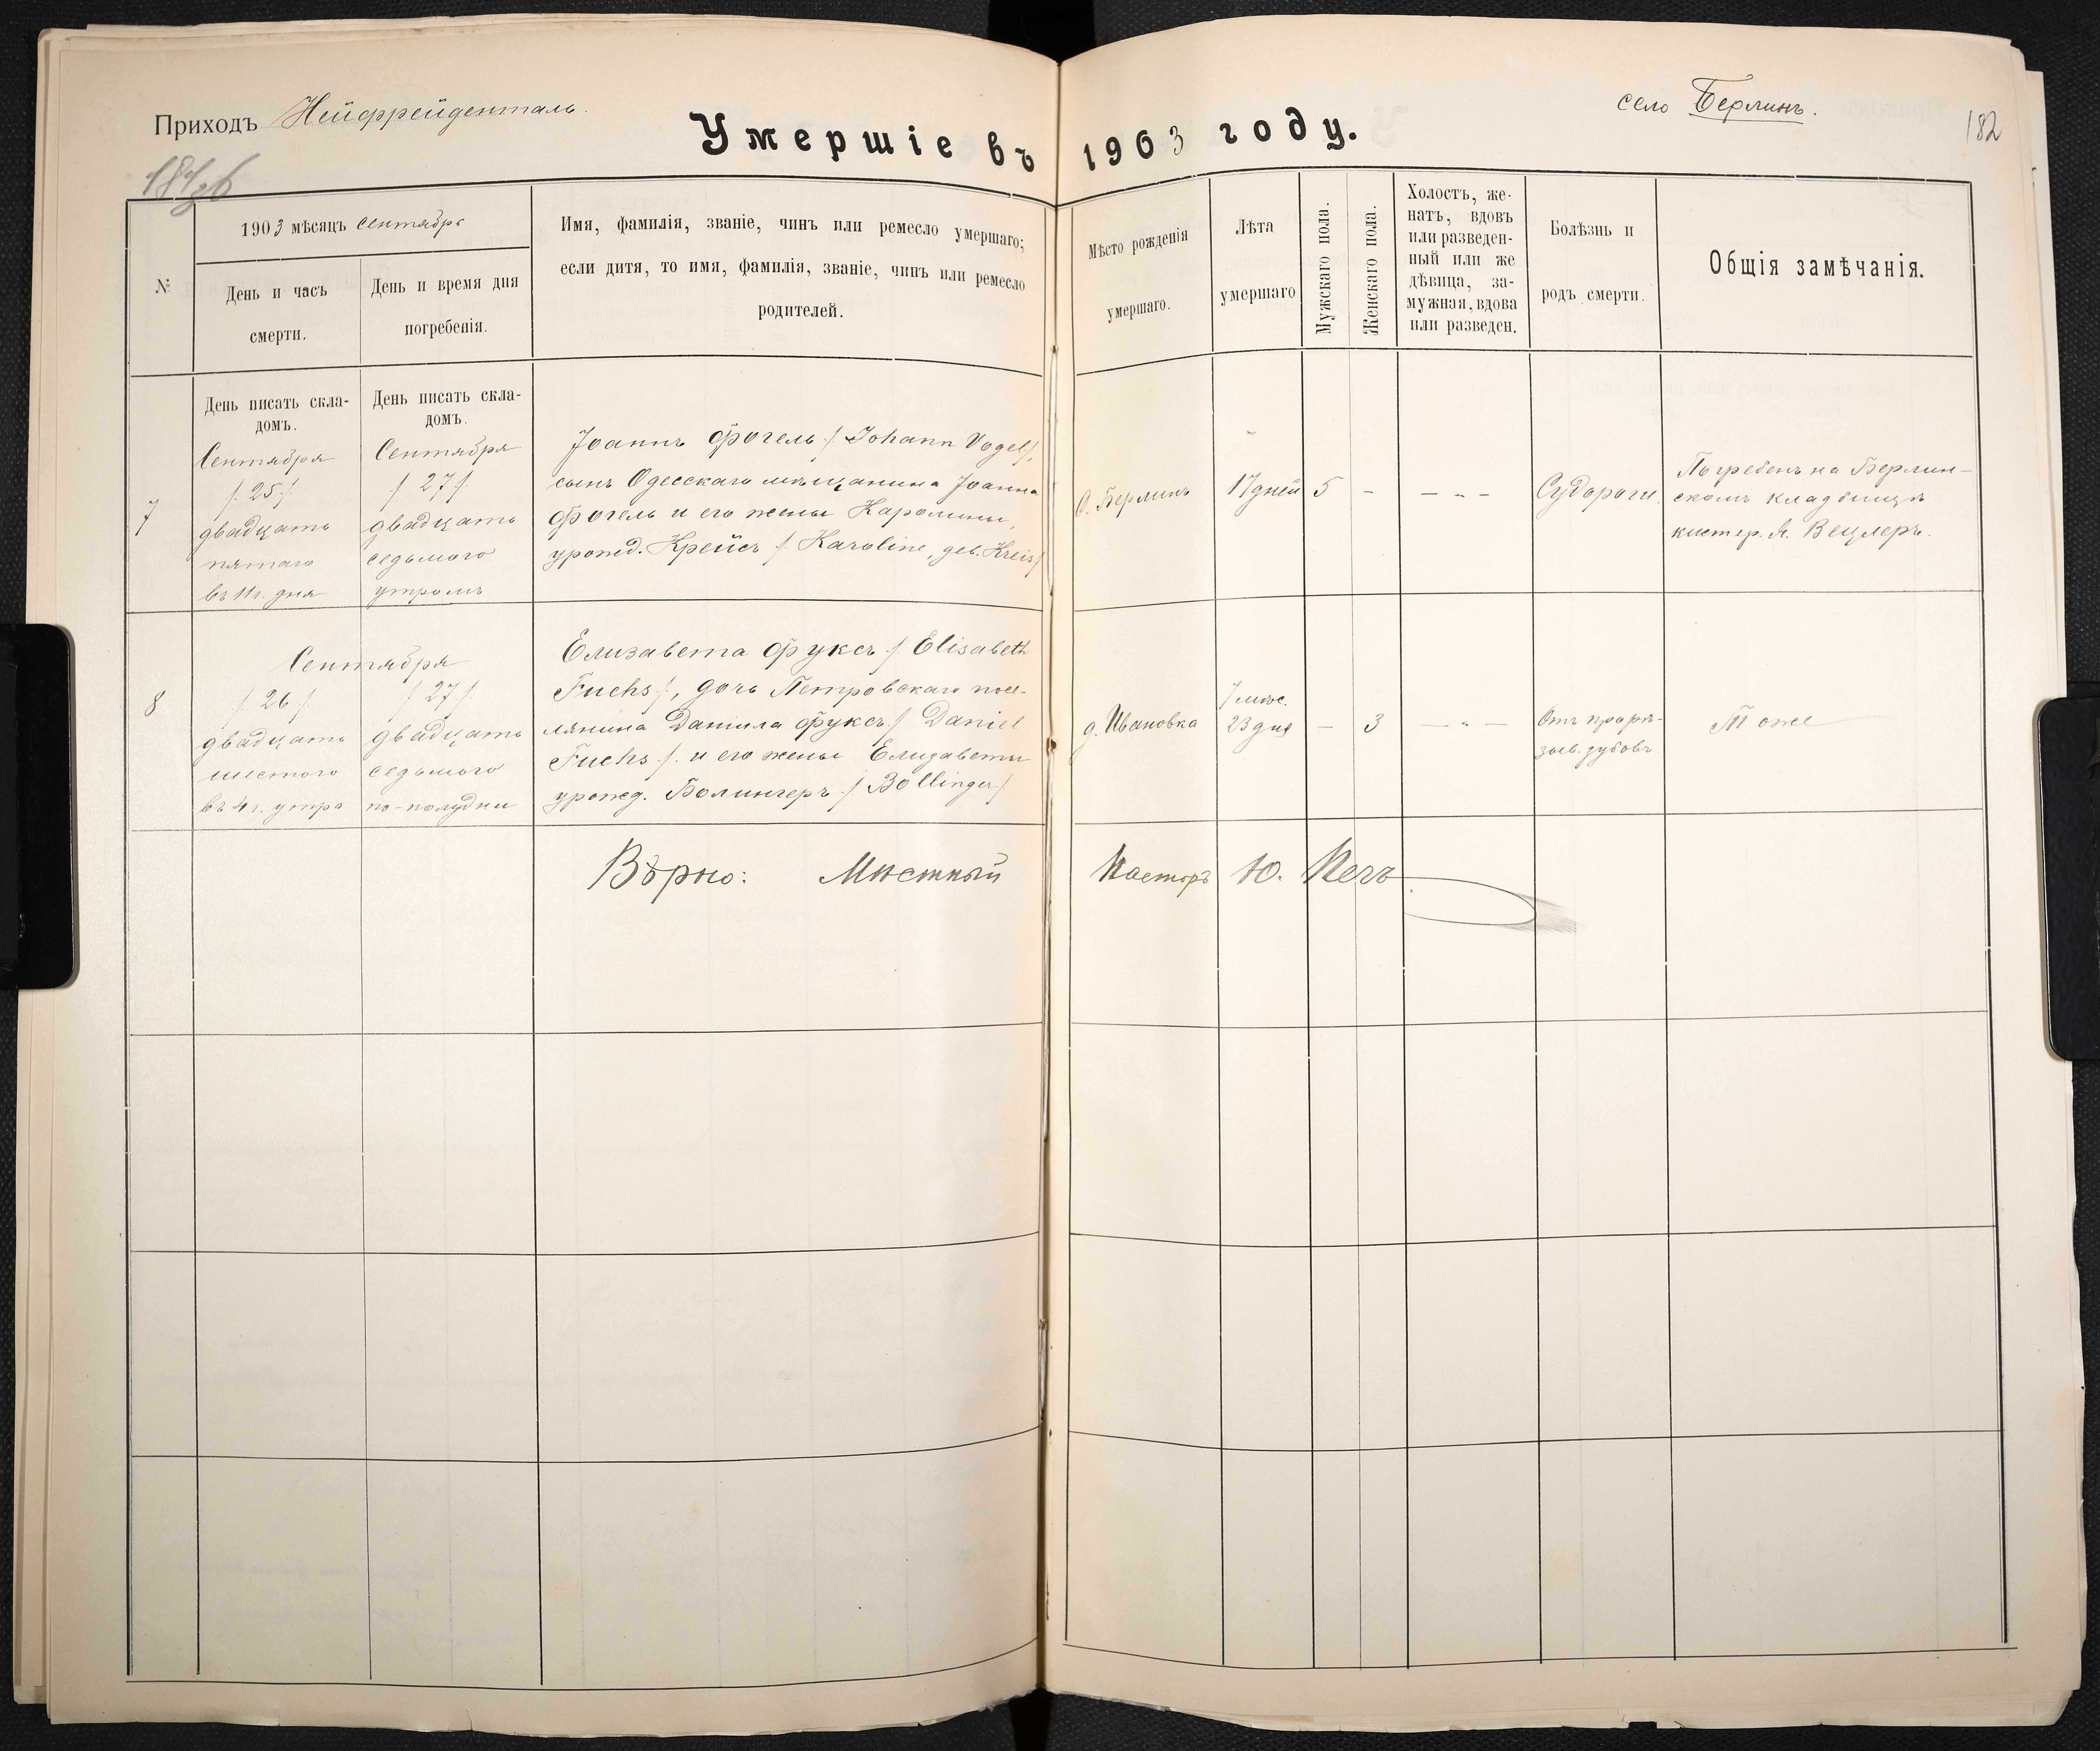 Приходъ Нейфрейденталь.
село Берлинъ.
182
Умершіе въ 1903 году.
№
1903 мѣсяцъ Сентябрь
День и часъ
смерти.
День и время дня
погребенія.
Имя, фамилія, званіе, чинъ или ремесло умершаго;
если дитя, то имя, фамилія, званіе, чинъ или ремесло
родителей.
Мѣсто рожденія
умершаго.
Лѣта
умершаго
Мужскаго пола.
Женскаго пола.
Холостъ, же-
натъ, вдовъ
или разведен-
ный или же
дѣвица, за-
мужная, вдова
или разведен.
Болѣзнь и
родъ смерти.
Общія замѣчанія.
7
День писать скла-
домъ.
Сентября
/ 25 /
двадцать
пятаго
въ 11 ч. дня
День писать скла-
домъ.
Сентября
/ 27 /
двадцать
седьмого
утромъ
Іоаннъ Фогель / Johann Vogel /,
сынъ Одесскаго мѣщанина Іоанна
Фогель и его жены Каролины,
урожд. Крейсъ / Karoline, geb. Kreis /
С. Берлинъ
17 дней
5
-
- " -
Судороги.
Погребенъ на Берлин-
скомъ кладбищѣ
кистер. Я. Вецлеръ.
8
Сентября
/ 26 /
двадцать
шестого
въ 4 ч. утра
/ 27 /
двадцать
седьмого
по-полудни
Елизавета Фуксъ / Elisabeth
Fuchs /, дочь Петровскаго посе-
лянина Данила Фуксъ / Daniel
Fuchs / и его жены Елизаветы
урожд. Болингеръ / Bollinger /
д. Ивановка
7 мѣс.
23 дня
-
3
- " -
Отъ прорѣ-
зыв. зубовъ.
Тоже
Вѣрно: Мѣстный Пасторъ Ю. Печъ